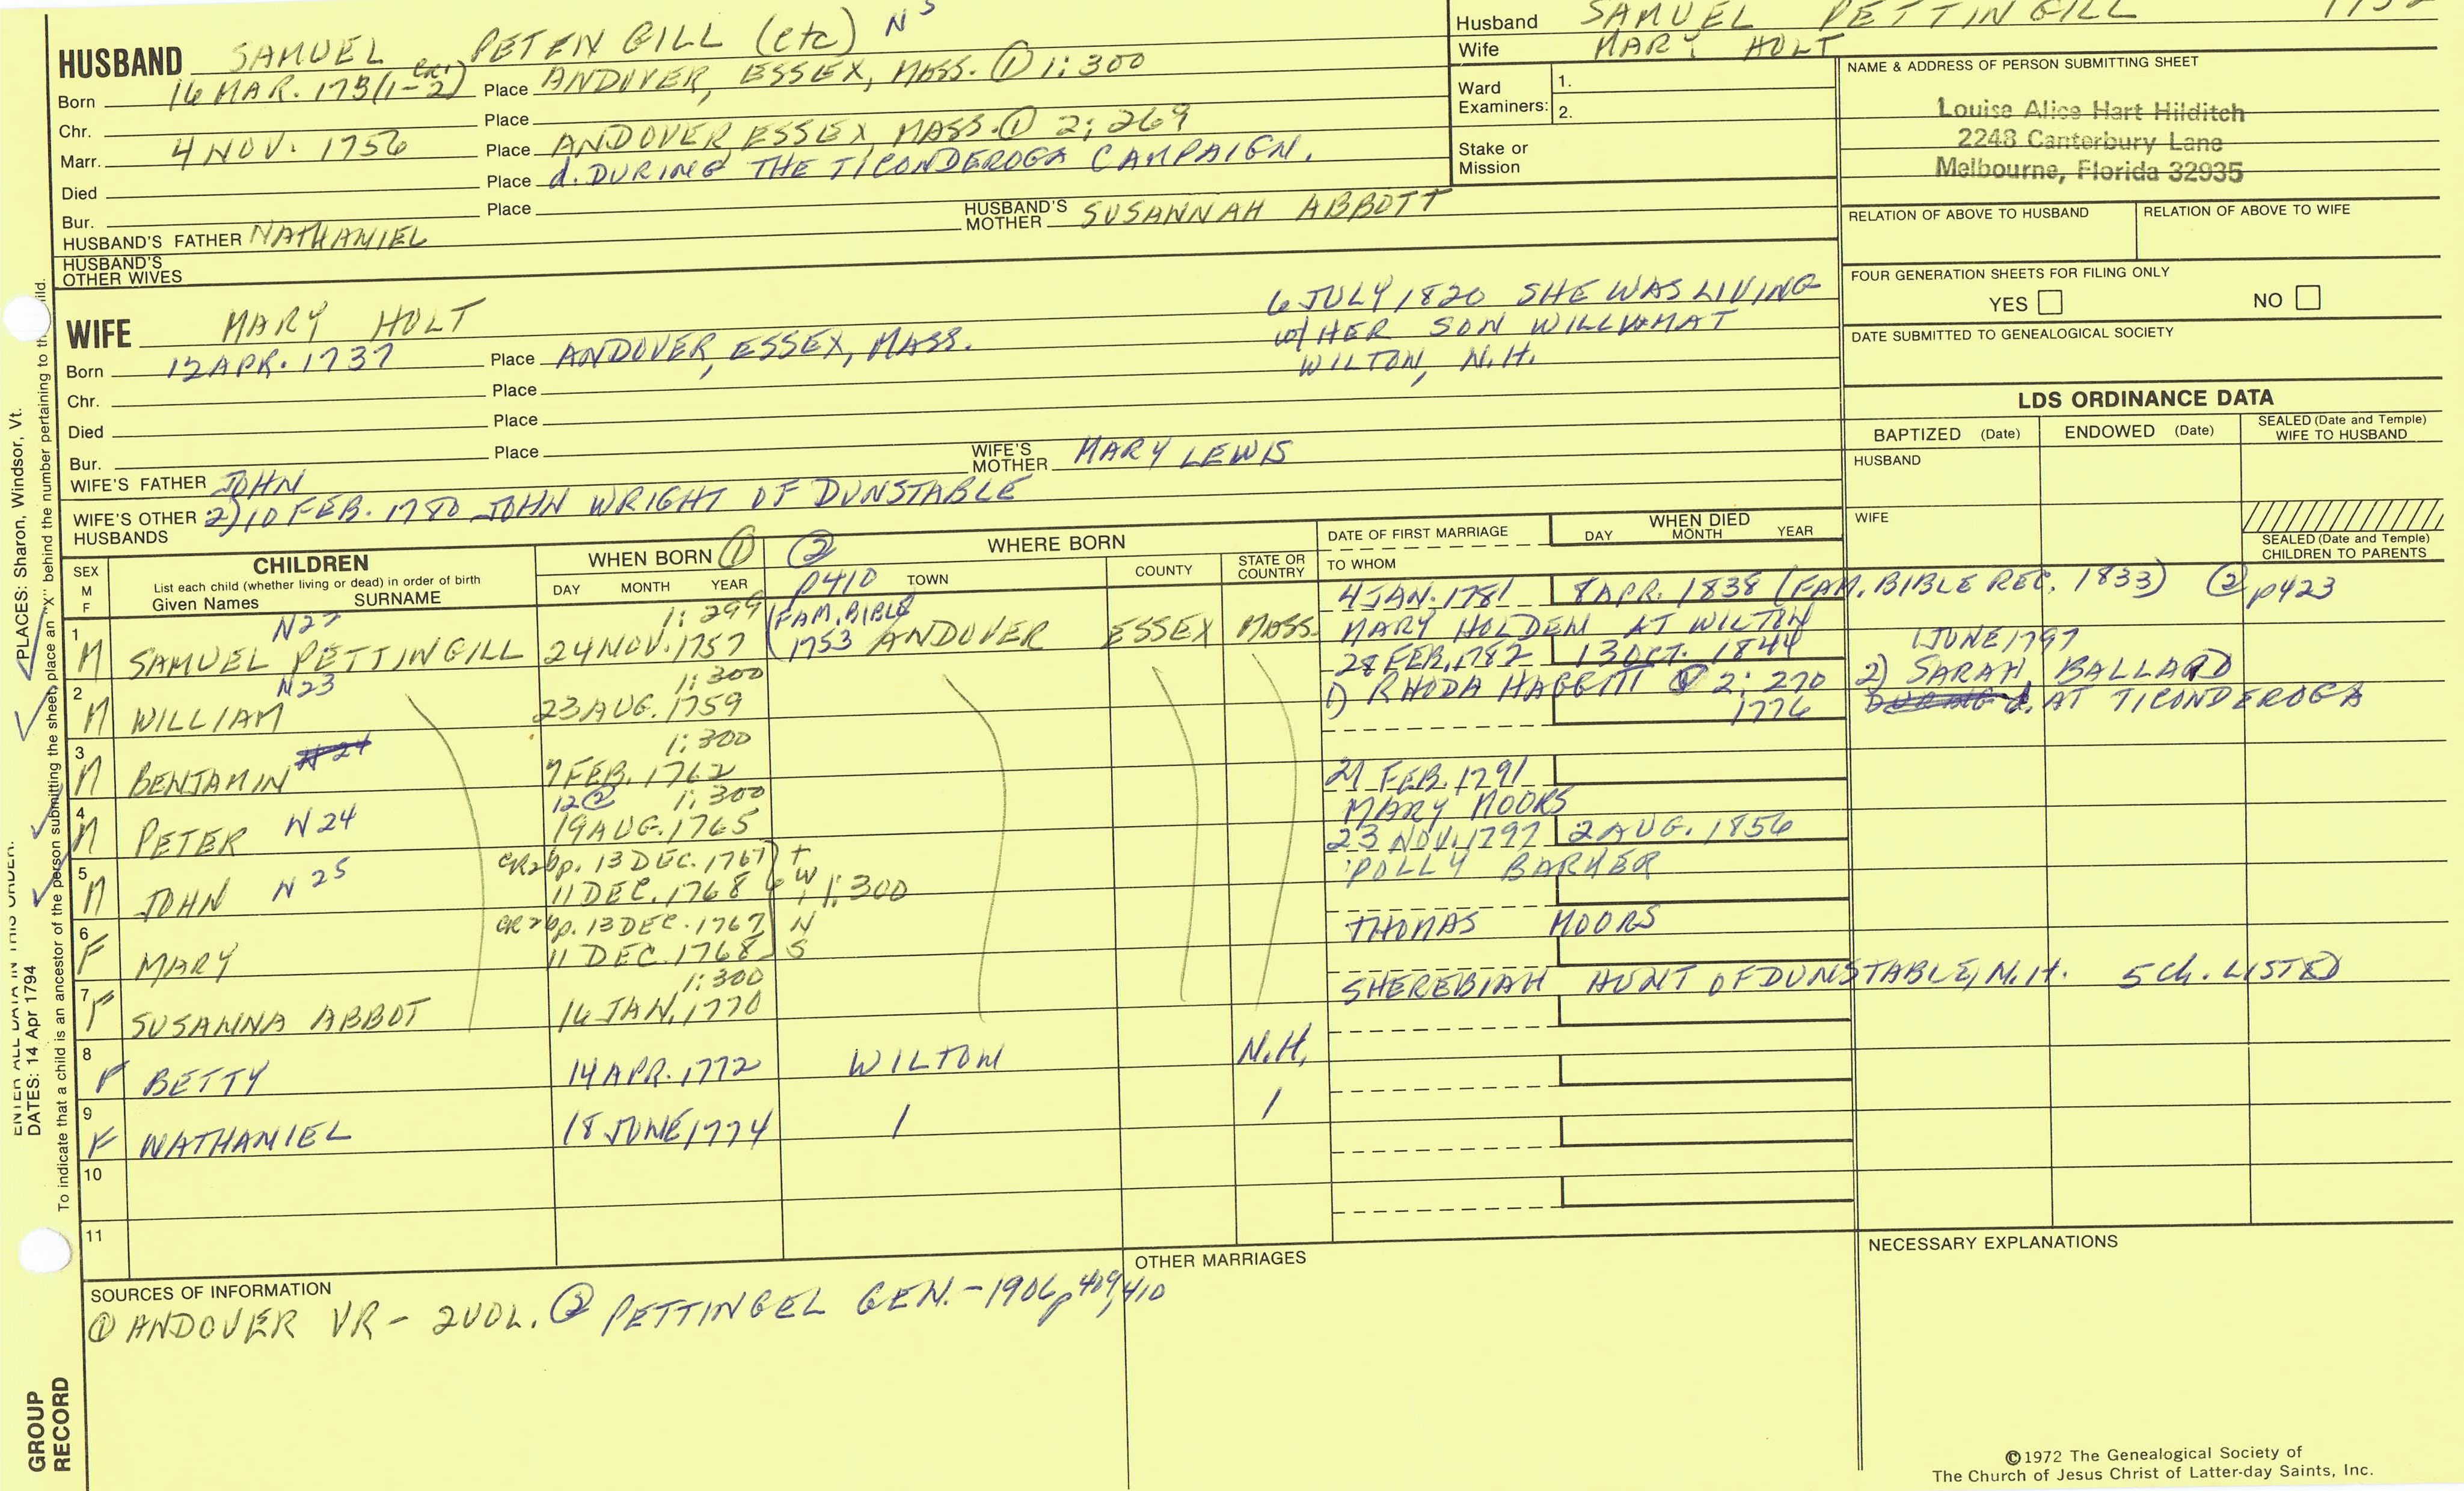 HUSBAND SAMUEL PETENGILL (etc) N5
Born 16 MAR. 173(1-2) CR1 Place ANDOVER, ESSEX, MASS. ① 1:300
Chr. Place
Marr. 4 NOV. 1756 Place ANDOVER ESSEX, MASS. ① 2:269
Died Place d. DURING THE TICONDEROGA CAMPAIGN.
Bur. Place
HUSBAND'S FATHER NATHANIEL HUSBAND'S MOTHER SUSANNAH ABBOTT
HUSBAND'S OTHER WIVES
WIFE MARY HOLT
Born 12 APR. 1737 Place ANDOVER, ESSEX, MASS.
6 JULY 1820 SHE WAS LIVING
w/ HER SON WILLIAM AT
WILTON, N.H.
Chr. Place
Died Place
Bur. Place
WIFE'S FATHER JOHN WIFE'S MOTHER MARY LEWIS
WIFE'S OTHER HUSBANDS 2) 10 FEB. 1780 JOHN WRIGHT OF DUNSTABLE
Husband SAMUEL PETTINGILL
Wife MARY HOLT
Ward Examiners: 1.
2.
Stake or Mission
NAME & ADDRESS OF PERSON SUBMITTING SHEET
Louise Alice Hart Hilditch
2248 Canterbury Lane
Melbourne, Florida 32935
RELATION OF ABOVE TO HUSBAND RELATION OF ABOVE TO WIFE
FOUR GENERATION SHEETS FOR FILING ONLY
YES NO
DATE SUBMITTED TO GENEALOGICAL SOCIETY
LDS ORDINANCE DATA
BAPTIZED (Date) ENDOWED (Date) SEALED (Date and Temple) WIFE TO HUSBAND
HUSBAND
WIFE
SEALED (Date and Temple) CHILDREN TO PARENTS
SEX M F
CHILDREN
List each child (whether living or dead) in order of birth
Given Names SURNAME
WHEN BORN ①
DAY MONTH YEAR
② p410
WHERE BORN
TOWN COUNTY STATE OR COUNTRY
DATE OF FIRST MARRIAGE
TO WHOM
WHEN DIED
DAY MONTH YEAR
1 M SAMUEL PETTINGILL N22 1:299 24 NOV. 1757 (FAM. BIBLE 1753 ANDOVER ESSEX MASS. 4 JAN. 1781 8 APR. 1838 (FAM. BIBLE REC. 1833) ② p423
MARY HOLDEN AT WILTON
2 M WILLIAM N23 1:300 23 AUG. 1759 28 FEB. 1782 13 OCT. 1844 1 JUNE 1797
1) RHODA HAGGETT ① 2:270 2) SARAH BALLARD
3 M BENJAMIN N24 1:300 7 FEB. 1762 1776 d. AT TICONDEROGA
4 M PETER N24 12② 1:300 19 AUG. 1765 21 FEB. 1791
MARY MOORS
5 M JOHN N25 CR2 bp. 13 DEC. 1767 11 DEC. 1768 TW 1:300 23 NOV. 1797 2 AUG. 1856
POLLY BARKER
6 F MARY CR2 bp. 13 DEC. 1767 11 DEC. 1768 NS
THOMAS MOORS
7 F SUSANNA ABBOT 1:300 16 JAN. 1770
SHEREBIAH HUNT OF DUNSTABLE, N.H. 5 CH. LISTED
8 F BETTY 14 APR. 1772 WILTON N.H.
9 F NATHANIEL 18 JUNE 1774
10
11
SOURCES OF INFORMATION
① ANDOVER VR - 2 VOL. ② PETTINGEL GEN. - 1906, p 409, 410
OTHER MARRIAGES
NECESSARY EXPLANATIONS
©1972 The Genealogical Society of
The Church of Jesus Christ of Latter-day Saints, Inc.
ENTER ALL DATA IN THIS ORDER.
DATES: 14 Apr 1794
PLACES: Sharon, Windsor, Vt.
To indicate that a child is an ancestor of the person submitting the sheet, place an "X" behind the number pertaining to
GROUP
RECORD